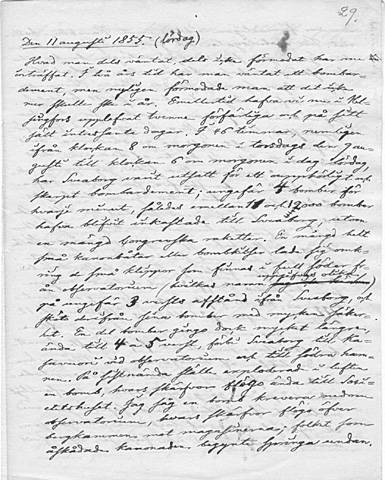 29.
Den 11 augusti 1855. (lördag)
Hvad man dels väntat, dels icke förmodat har nu
inträffat. I två års tid har man väntat ett bombar-
dement, men nyligen förmodade man att det icke
mer skulle ske i år. Emellertid hafva vi nu i Hel-
singfors upplefvat tvenne förfärliga och på sitt
sätt intressanta dagar. I 46 timmar, nemligen
ifrån klockan 8 om morgonen i torsdags den 9 au-
gusti till klockan 6 om morgonen i dag lördag
har Sveaborg varit utsatt för ett oupphörligt och
skarpt bombardement; ungefär 4 bomber för
hvarje minut, således emellan 11 och 12000 bomber
hafva blifvit utkastade till Sveaborg, utom
en mängd Congrevska raketter. En mängd helt
små kanonbåtar eller bombkitslar lade sig om-
kring de små klippor som finnas i
om observatorium (hvilkas namn
på ungefär 3 versts afstånd ifrån Sveaborg, och
sköto derifrån sina bomber med mycken säker-
het. En del bomber gingo dock mycket längre,
ända till 4 a 5 verst, förbi Sveaborg till
vid observatorium och till södra ham-
nen. På sistnämnde ställe exploderade i luften
en bomb, hvars skärfvor flögo ända till
Jag såg en bomb krevera nedom
observatorium, hvars skärfvor flögo öfver
bergskammen mot magasinerna; folket som
åskådade kanonaden begynte springa undan.